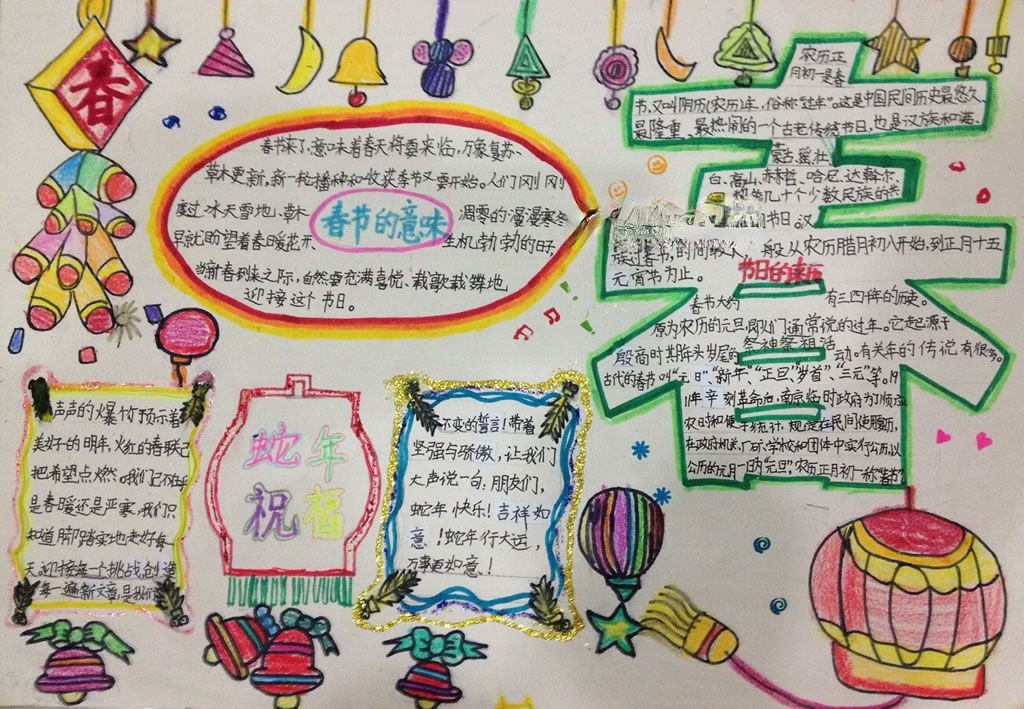 春
春节来了,意味着春天将要来临,万象复苏、
草木更新,新一轮播种和收获季节又要开始。人们刚刚
度过冰天雪地、草木
春节的意味
凋零的漫漫寒冬
早就盼望着春暖花开、
生机勃勃的日子,
当新春到来之际,自然要充满喜悦、载歌载舞地
迎接这个节日。
农历正
月初一是春
节,又叫阴历(农历)年,俗称"过年"。这是中国民间历史最悠久、
最隆重、最热闹的一个古老传统节日,也是汉族和满、
蒙古、瑶、壮、
白、高山、赫哲、哈尼、达斡尔、
几十个少数民族的共
节日。汉
族过春节,
般从农历腊月初八开始,到正月十五
元宵节为止。
节日的来历
春节大约
有三四千年的历史。
原为农历的元旦,即人们通常说的过年。它起源于
殷商时期年头岁尾的祭神祭祖活动。有关年的传说有很多。
古代的春节叫"元日"、"新年"、"正旦"、"岁首"、"三元"等。19
11年辛刻革命后,南京临时政府为了顺应
农时和便于统计,规定在民间使用夏历,
在政府机关、厂矿、学校和团体中实行公历,以
公历的元月一日为"元旦",农历正月初一称"春节"。
声声的爆竹预示着
美好的明年,火红的春联已
把希望点燃。我们不在乎
是春暖还是严寒,我们只
知道脚踏实地走好每一
天,迎接每一个挑战,创造
每一遍新文章,是我们
蛇年
祝福
不变的誓言!带着
坚强与骄傲,让我们
大声说一句:朋友们,
蛇年快乐!吉祥如
意!蛇年行大运,
万事更如意!